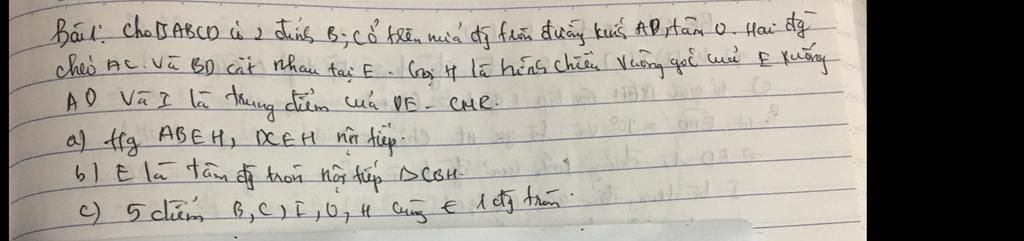 Bài 1: Cho □ABCD có 2 đỉnh B; C ở trên nửa đg tròn đường kính AD, tâm O. Hai đg
chéo AC và BD cắt nhau tại E. Gọi H là hình chiếu vuông góc của E xuống
AD và I là trung điểm của DE. CMR.
a) tfg ABEH, DCEH nội tiếp.
b) E là tâm đg tròn nội tiếp △CBH.
c) 5 điểm B, C, I, O, H cùng ∈ 1 đg tròn.